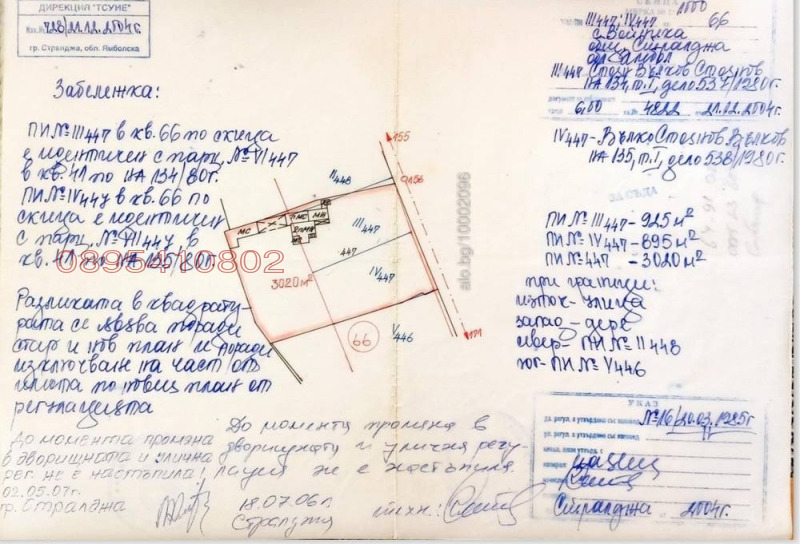 ДИРЕКЦИЯ "ТСУИЕ"
728/21.12.2004г.
гр. Стралджа, обл. Ямболска
1000
III447; IV447
66
с. Войника
общ. Стралджа
обл. Ямбол
III 448 Стоян Вълков Стоянов
НА 134, т. I, дело 537/1980г.
6,00 4822 21.12.2004г.
IV 447 - Вълко Стоянов Вълков
НА 135, т. I, дело 538/1980г.
ЗА СЪДА
Забележка:
ПИ № III 447 в кв. 66 по скица
е идентичен с парц. № VI 447
в кв. 41 по НА 134/80г.
ПИ № IV 447 в кв. 66 по
скица е идентичен
с парц. № VII 447, в
кв. 41 по НА 135/80г.
0895410802
Разликата в квадрату-
рата се явява поради
стар и нов план и поради
изключване на част от
имота по новия план от
регулацията
155
9156
II 448
МС
ПМС
МН
III 447
447
IV 447
3020 м²
66
V 446
171
alo.bg/10002096
ПИ № III 447 - 925 м²
ПИ № IV 447 - 895 м²
ПИ № 447 - 3020 м²
при граници:
изток - улица
запад - дере
север - ПИ № II 448
юг - ПИ № V 446
До момента промяна
в дворищната и улична
рег. не е настъпила!
02.05.07г.
гр. Стралджа
До момента промяна в
дворищната и улична регу-
лация не е настъпила.
18.07.06г.
Стралджа
техн.:
УКАЗ
№16/20.03.1985г
Стралджа 2004г.